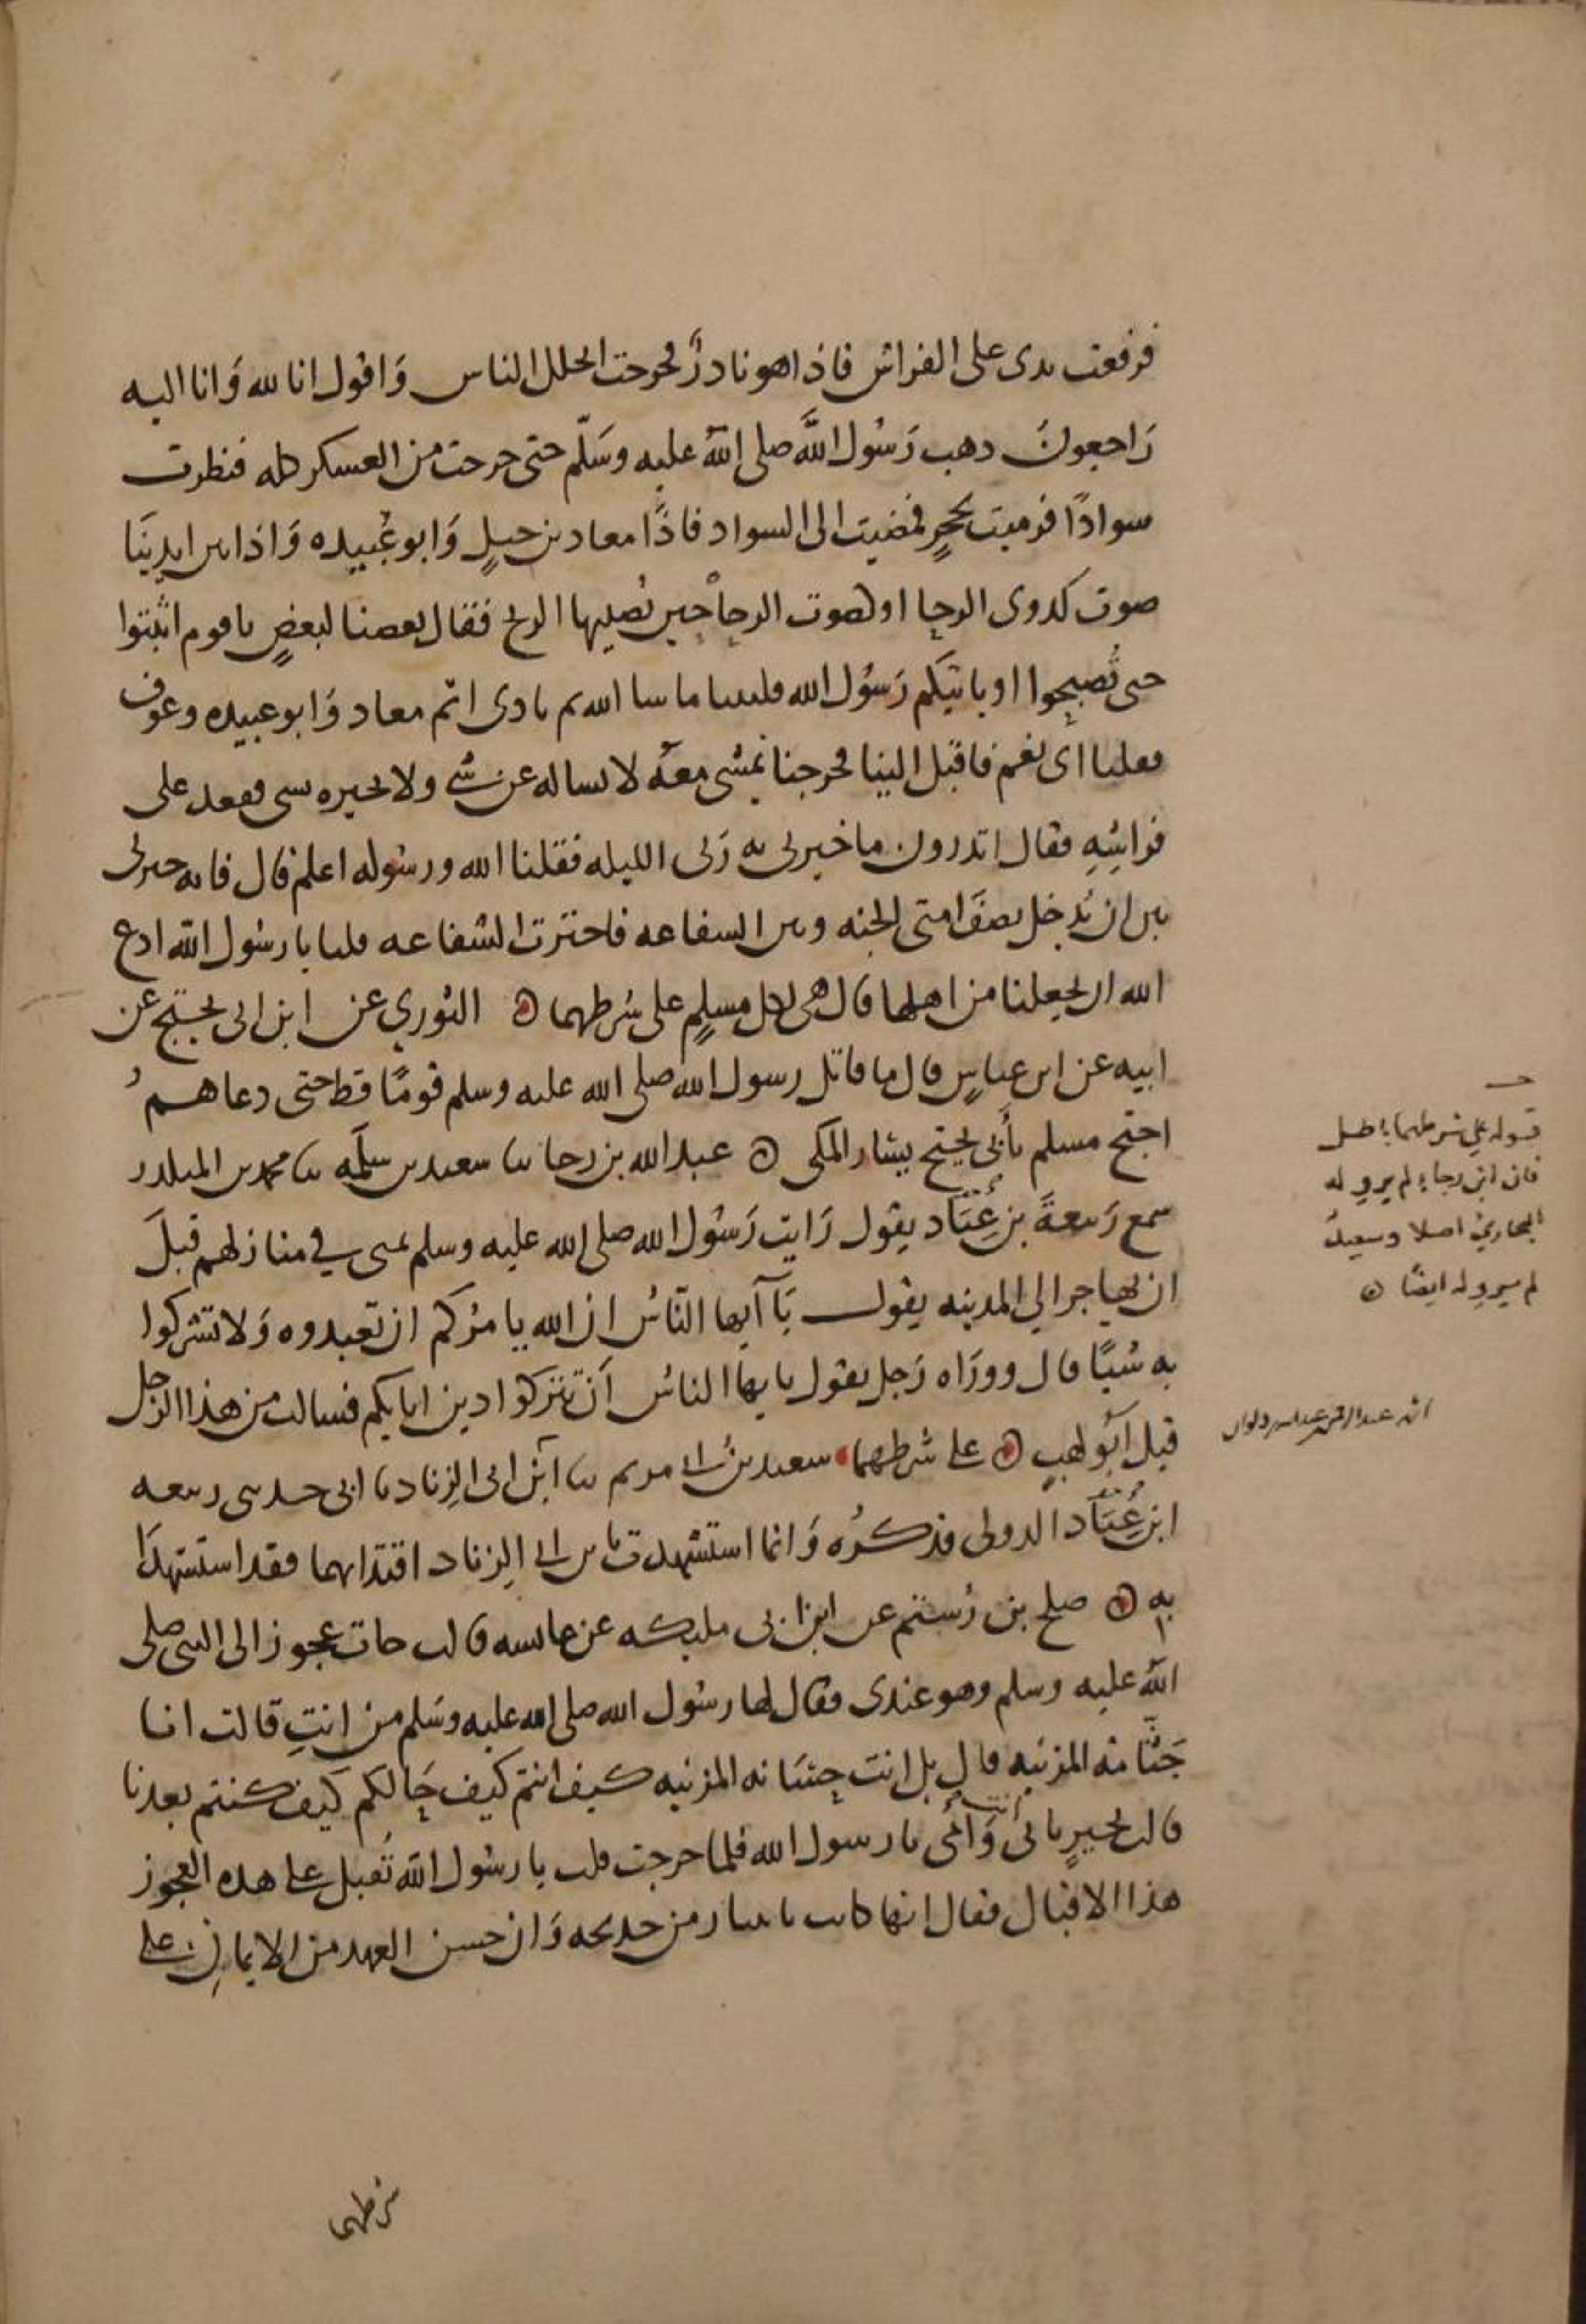 فرفعت يدى على الفراش فاذا هو نادر فخرجت اتخلل الناس وَاقول انا لله وَانا اليه
رَاجعون دهب رَسُول اللَّه صلى اللهُ عليه وسَلّم حتى خرجت من العسكر كله فنظرت
سوادًا فرميت بحجرٍ فمضيت الى السواد فاذًا معاد بن جبلٍ وَابو عُبيده وَاذا بين ايدينَا
صوت كدوى الرحا او لصوت الرحا حين تُصليها الريح فقال بعضنا لبعضٍ يا قوم اثبتوا
حتى تُصبحوا او ياتيكم رَسُول الله فلبثنا ما شا الله ثم نادى اثم معاد وَابو عبيده وعوف
فقلنا اى نعم فاقبل الينا فخرجنا نمشى معَه لا نساله عن شى ولا يخبره بشى فقعد على
فراشِهِ فقال اتدرون ما خيرنى به رَبى الليله فقلنا الله ورسُوله اعلم قال فانه خيرنى
بين ان يُدخل نصفَ امتى الجنه وبين الشفاعه فاخترت الشفاعه فلنا يا رسُول الله ادع
الله ان يجعلنا من اهلها قال هى لكل مسلمٍ على شرطهما ۞ الثوري عن ابن ابى نجيح عن
ابيه عن ابن عباسٍ قال ما قاتل رسول الله صلى الله عليه وسلم قومًا قط حتى دعاهم
احتج مسلم بأبى نجيح يسار المكى ۞ عبد الله بن رجا ثنا سعيد بن سلَمَه ثنا محمد بن المنكدر
سمع رَبيعةَ بن عُبَّاد يقول رَايت رَسُول الله صلى الله عليه وسلم بمنى في منازلهم قبلَ
ان يهاجر الي المدينه يقول يَا آيها النَّاسُ ان الله يامرُكم ان تعبدوه وَلا تشركوا
به شيًا قال وورَاه رَجل يقول يا يها الناسُ أن تتركوا دين ابايكم فسالت من هذا الرجل
قيل اَبُو لهبٍ ۞ على شرطهما سعيد بن ابى مريم ثنا ابن ابى الزناد نا ابى حدثنى ربيعه
ابن عُبَّاد الدولى فذكرُه وَانما استشهدت بابن ابى الزناد اقتدا بهما فقد استشهدَا
به ۞ صلح بن رُستم عن ابن ابى مليكه عن عايشه قالت جات عجوز الى النبى صلى
اللهُ عليه وسلم وهو عندى فقال لها رسُول الله صلى الله عليه وسَلم من انتِ قالت انا
جَثَّامَه المزنيه قال بل انت حِسَّانه المزنيه كيف انتم كيف حَالكم كيف كنتم بعدنا
قالت بخيرٍ بابى وَامى يا رسول الله فلما خرجت قلت يا رسُول الله تُقبل على هده العجوز
هذا الاقبال فقال انها كانت تاتينا زمن خديجه وَان حسن العهد من الايمان على
شرطهما
قوله على شرطهما باطل
فان ابن رجاء لم يرو له
البخاري اصلا وسعيد
لم يرو له ايضًا ۞